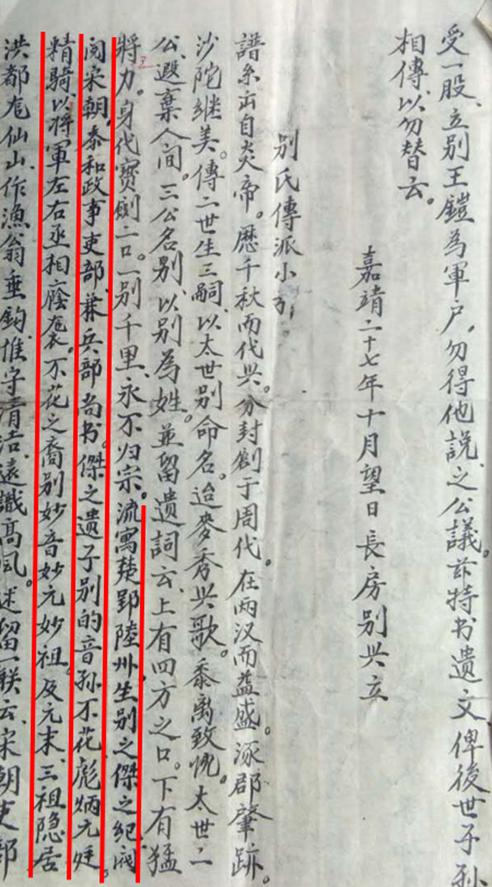 受一股、立别王鎧為軍户、勿得他説、之公議、兹特书遗文、俾後世子孙
相傳、以勿替云。
嘉靖二十七年十月望日長房别兴立
别氏傳派小引。
譜系出自炎帝。歷千秋而代兴。分封創于周代。在两汉而益盛。涿郡肇跡。
沙陀继美。傳二世生三嗣、以太世别命名。迨麥秀兴歌。黍离致忧。太世二
公、遐棄人间。三公名别、以别為姓。並留遺詞云、上有四方之口。下有猛
將力。身代寳劍二口。一别千里、永不归宗。流寓楚郢陸州、生别之傑之纪、
阅宋朝、泰和政事吏部、兼兵部尚书。傑之遗子别的音孙不花、彪炳元廷。
精騎以将軍左右丞相廕襲、不花之裔别妙音妙元妙祖。及元末、三祖隐居
洪都尨仙山、作漁翁垂钩、惟字清洁、遠識髙风。述留一联云、宋朝吏部